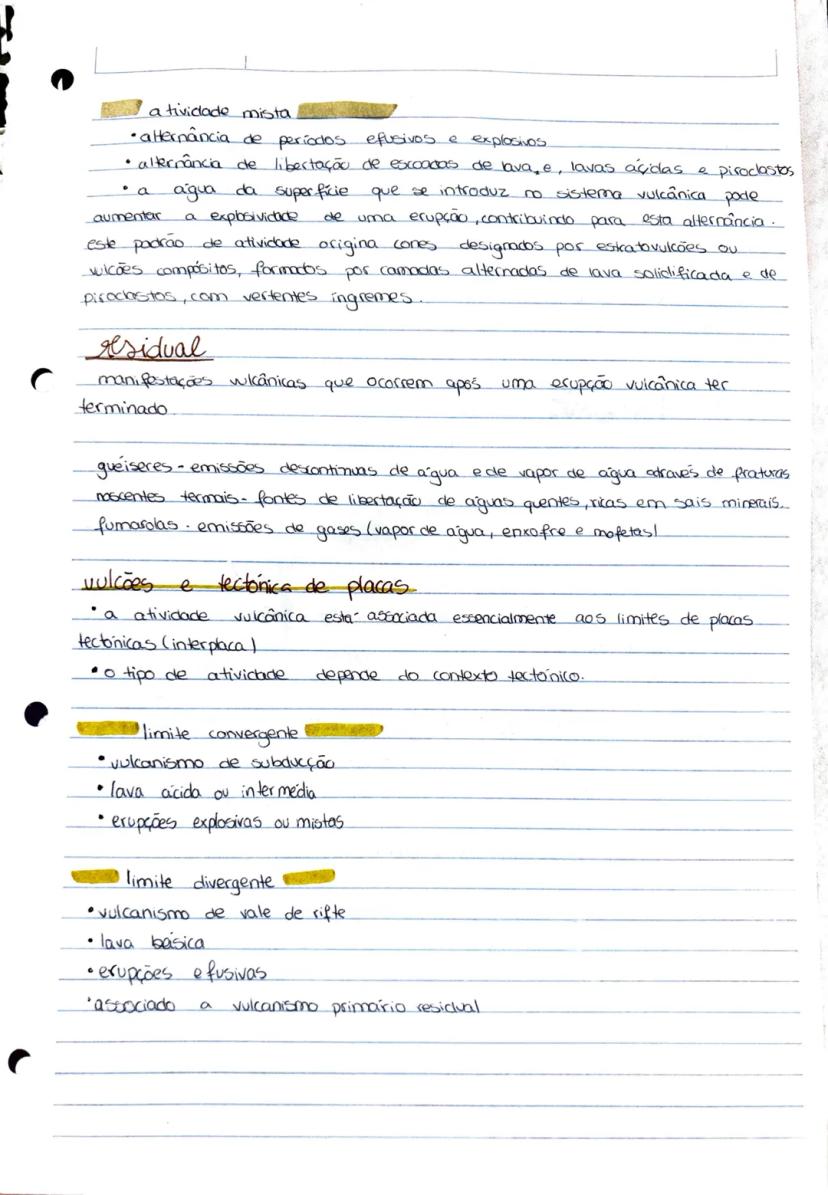 atividade mista
• alternância de períodos efusivos e explosivos
• alternância de libertação de escoadas de lava, e, lavas ácidas e piroclastos
• a água da superfície que se introduz no sistema vulcânica pode
aumentar a explosividade de uma erupção, contribuindo para esta alternância.
este padrão de atividade origina cones designados por estratovulcões ou
vulcões compósitos, formados por camadas alternadas de lava solidificada e de
piroclastos, com vertentes íngremes.
residual
manifestações vulcânicas que ocorrem após uma erupção vulcânica ter
terminado.
guéiseres - emissões descontinuas de água e de vapor de água através de fraturas
nascentes termais - fontes de libertação de águas quentes, ricas em sais minerais.
fumarolas - emissões de gases (vapor de água, enxofre e mofetas)
vulcões e tectónica de placas
• a atividade vulcânica está associada essencialmente aos limites de placas
tectónicas (interplaca)
• o tipo de atividade depende do contexto tectónico.
limite convergente
• vulcanismo de subducção
• lava ácida ou intermédia
• erupções explosivas ou mistas
limite divergente
• vulcanismo de vale de rifte
• lava básica
• erupções efusivas
• associado a vulcanismo primário residual